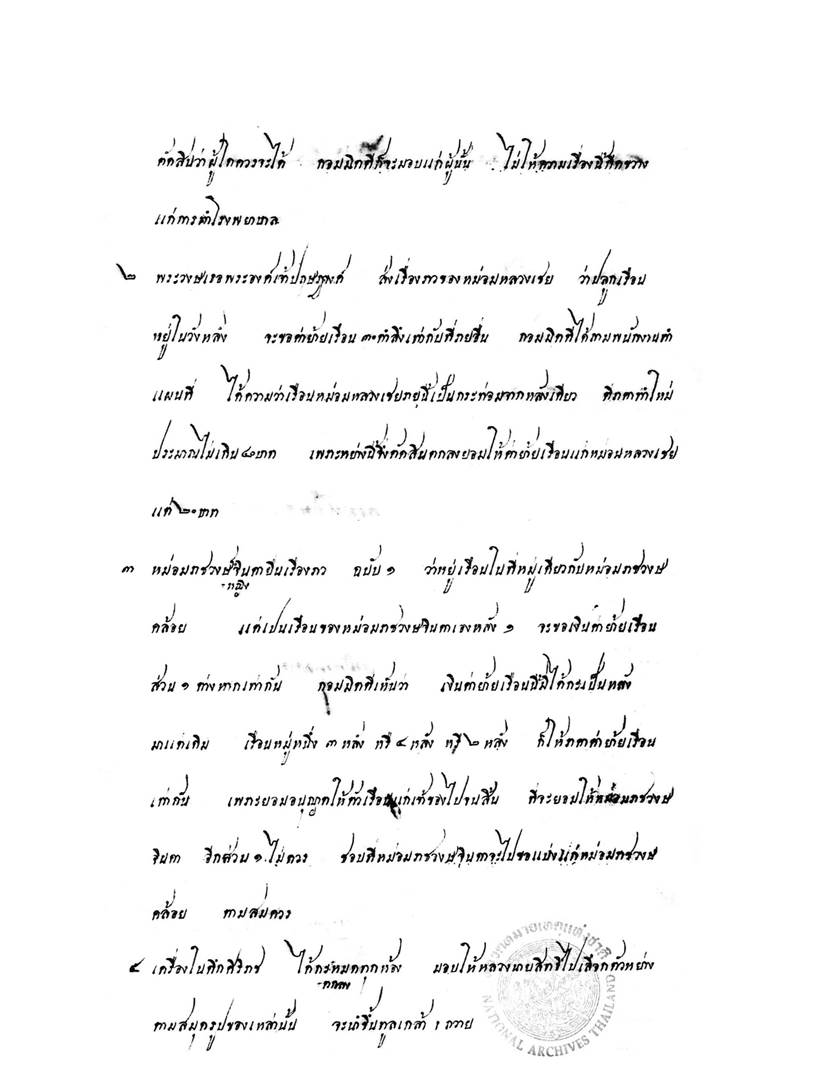 ตัดสินว่าผู้ใดควรจะได้ กอมมิตตีก็จะมอบแก่ผู้นั้น ไม่ให้ความเรื่องนี้กีดขวาง
แก่การทำโรงพยาบาล
๒ พระวงษเธอพระองค์เจ้าปฤษฎางค์ ส่งเรื่องราวของหม่อมหลวงเชย ว่าปลูกเรือน
หยู่ในวังหลัง จะขอค่าย้ายเรือน ๓๐ ตำลึงเท่ากับที่รายอื่น กอมมิตตีได้ถามพนักงานทำ
แผนที่ ได้ความว่าเรือนหม่อมหลวงเชยรายนี้เป็นกระท่อมจากหลังเดียว คิดราคาทำใหม่
ประมาณไม่เกิน ๔๐ บาท เพราะหย่างนี้จึ่งตัดสินตกลงยอมให้ค่าย้ายเรือนแก่หม่อมหลวงเชย
แต่ ๒๐ บาท
๓ หม่อมราชวงษจินดายื่นเรื่องราว ฉบับ ๑ ว่าหยู่เรือนในที่หมู่เดียวกับหม่อมราชวงษ
หญิง
คล้อย แต่เปนเรือนของหม่อมราชวงษจินดาเองหลัง ๑ จะขอเงินค่าย้ายเรือน
ส่วน ๑ ต่างหากเท่ากัน กอมมิตตีเห็นว่า เงินค่าย้ายเรือนนี้มิได้กะเป็นหลัง
มาแต่เดิม เรือนหมู่หนึ่ง ๓ หลัง ฤๅ ๔ หลัง ฤๅ ๒ หลัง ก็ให้ราคาค่าย้ายเรือน
เท่ากัน เพราะยอมอนุญาตให้ตัวเรือนแก่เจ้าของไปจนสิ้น ที่จะยอมให้หม่อมราชวงษ
จินดา อีกส่วน ๑ ไม่ควร ชอบที่หม่อมราชวงษจินดาจะไปขอแบ่งแก่หม่อมราชวงษ
คล้อย ตามสมควร
๔ เครื่องในตึกศิริราช ได้กะหมดทุกห้อง มอบให้หลวงนายสิทธิ์ไปเลือกตัวหย่าง
ตามสมุดรูปของเหล่านั้น จะนำขึ้นทูลเกล้า ฯ ถวาย
หอจดหมายเหตุแห่งชาติ
NATIONAL ARCHIVES THAILAND